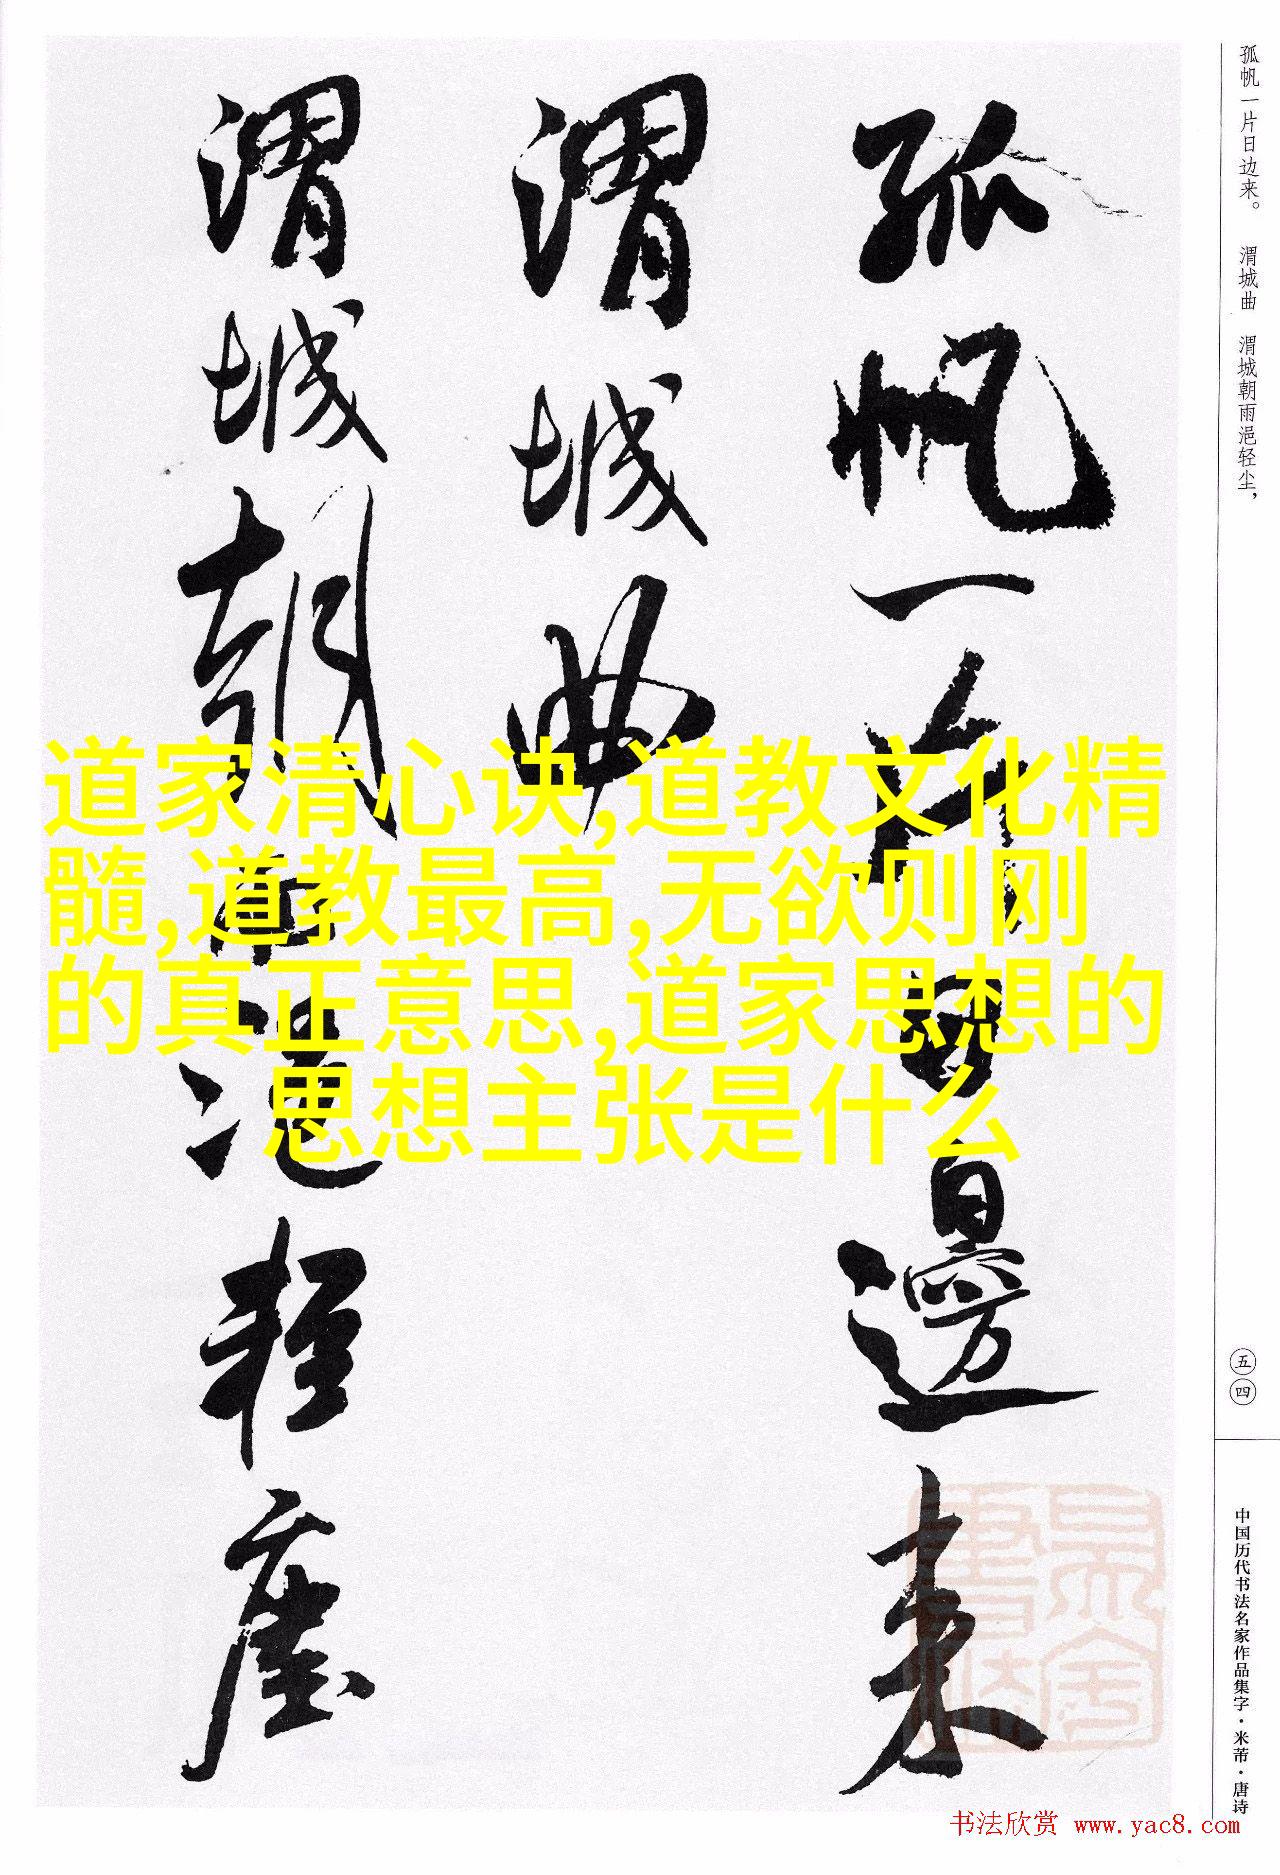 孤帆一片日邊来
渭城曲
渭城朝雨浥轻塵
道家清心诀,道教文化精
髓,道教最高,无欲则刚
的真正意思,道家思想的
思想主张是什么
孤帆一片日边来。 渭城曲 渭城朝雨浥轻尘，
五四
中国历代书法名家作品集字·米芾·唐诗
书法欣赏 www.yac8.com